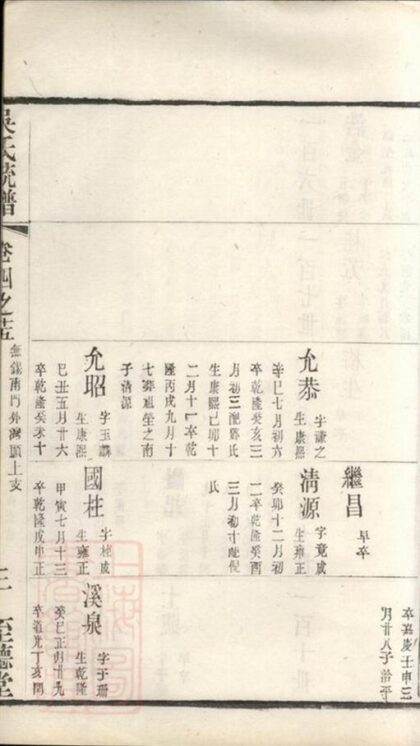 卒嘉慶壬申三
月廿八子治平
繼昌
早卒
允恭
字謙之
生康熙
辛巳七月初六
卒乾隆癸亥三
月初三配鄧氏
生康熙己卯十
二月十一卒乾
隆丙戌九月十
七葬祖塋之南
子清源
清源
字竟成
生雍正
癸卯十二月初
二卒乾隆癸酉
三月初十配倪
氏
允昭
字玉麟
生康熙
己丑五月廿六
卒乾隆癸未十
國柱
字棟成
生雍正
甲寅七月十三
卒乾隆戊申正
溪泉
字于珊
生乾隆
癸巳正月廿九
卒道光丁亥閏
吳氏統譜
卷四之五
無錫南門外灣頭上支
三
至德堂